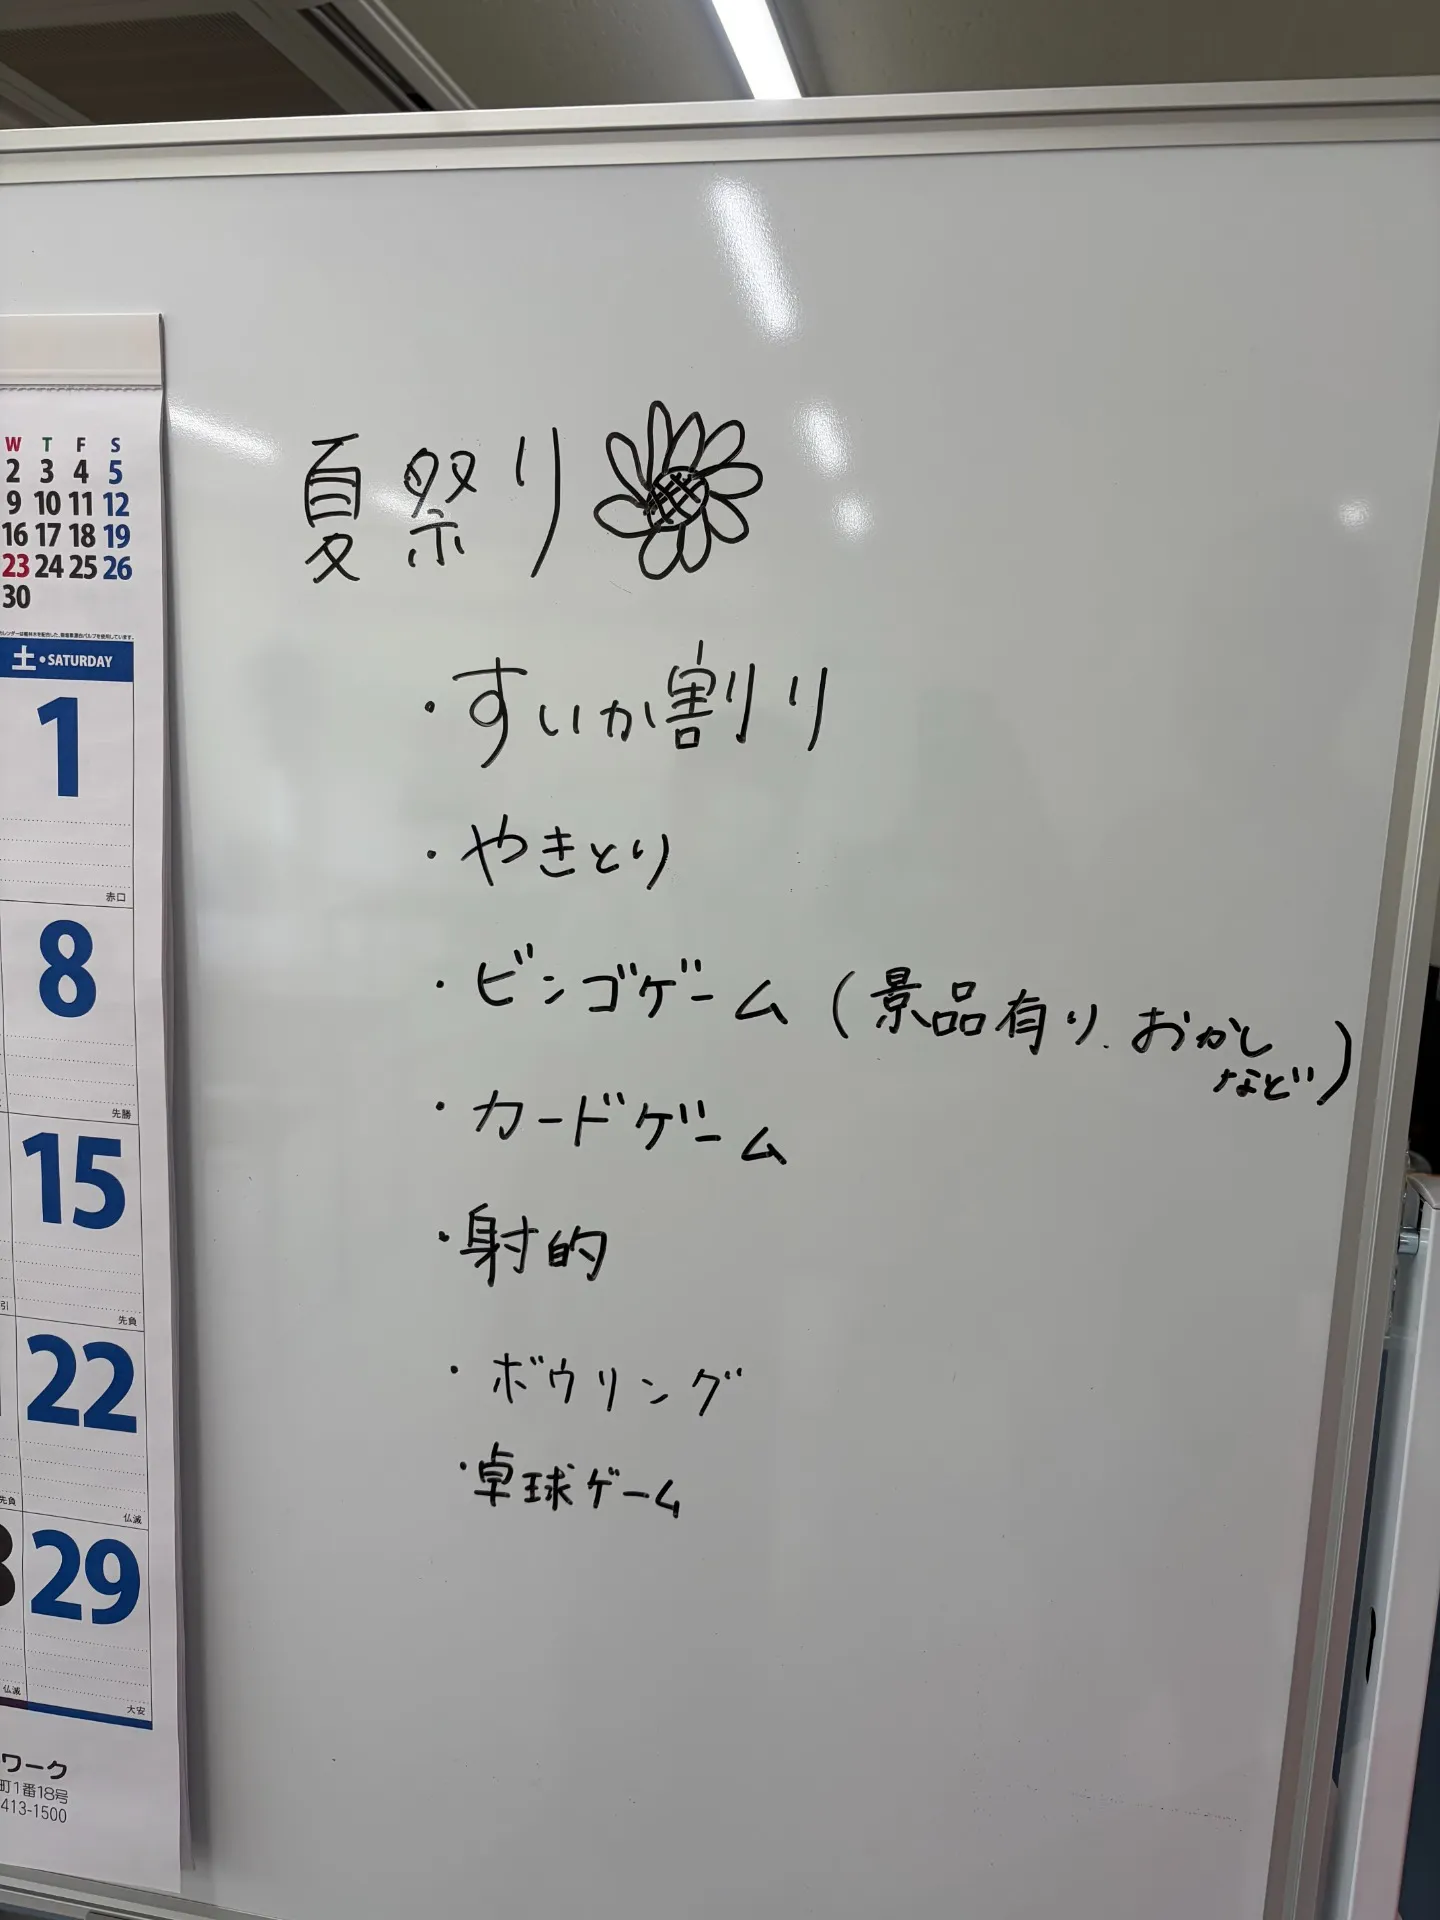 夏祭り
・すいか割り
・やきとり
・ビンゴゲーム（景品有り、おかし
など）
・カードゲーム
・射的
・ボウリング
・卓球ゲーム
W T F S
2 3 4 5
9 10 11 12
16 17 18 19
23 24 25 26
30
土・SATURDAY
1
赤口
8
先勝
15
引 先負
22
先負 仏滅
29
仏滅 大安
ワーク
町1番18号
413-1500